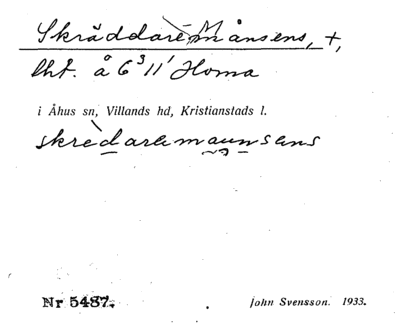 Skräddare Månsens, +,
lht. å 6³ 11' Homa
i Åhus sn, Villands hd, Kristianstads l.
skrèdaremaunsens
Nr 5487.
John Svensson. 1933.